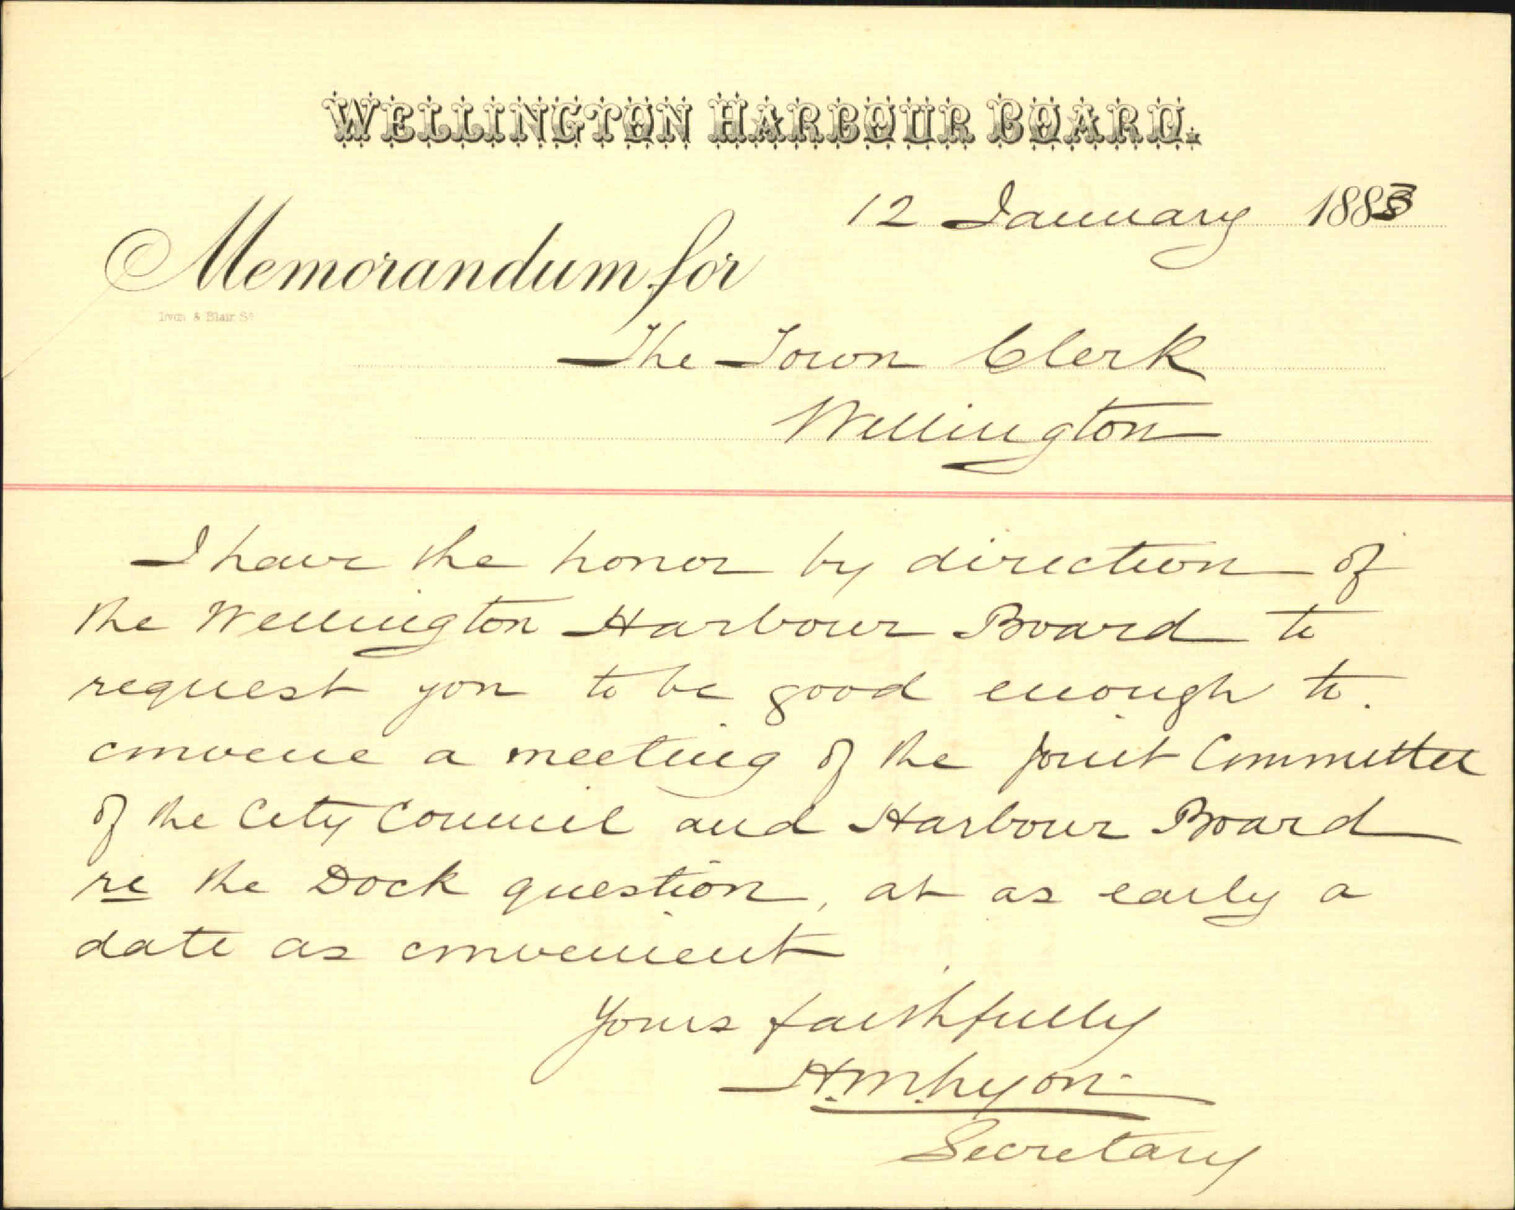 WELLINGTON HARBOUR BOARD.
12 January 1883
Memorandum for
& Blair
The Town Clerk
Wellington
I have the honor by direction of
the Wellington Harbour Board to
request you to be good enough to
convene a meeting of the Joint Committee
of the City Council and Harbour Board
re the Dock question, at as early a
date as convenient
Yours faithfully
H.M. Lyon
Secretary